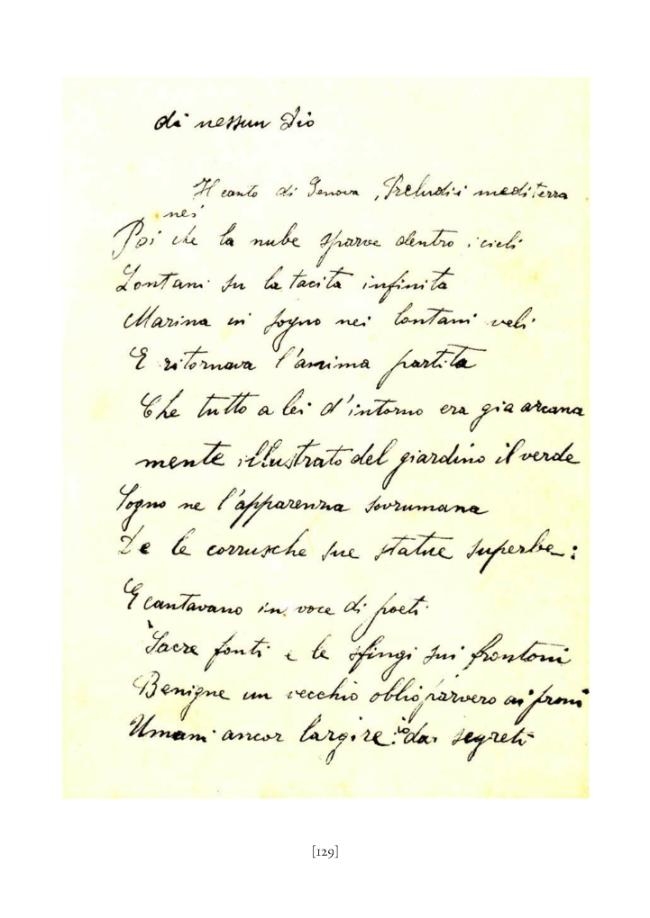 di nessun Dio
Il canto di Genova, Preludii mediterra
nei
Poi che la nube sparve dentro i cieli
Lontani su la tacita infinita
Marina in sogno nei lontani veli
E ritornava l'anima partita
Che tutto a lei d'intorno era gia arcana
mente illustrato del giardino il verde
Sogno ne l'apparenza sovrumana
De le corrusche sue statue superbe:
E cantavano in voce di poeti
Sacre fonti e le sfingi sui frontoni
Benigne un vecchio oblio parvero ai proni
Umani ancor largire: dai segreti
[129]